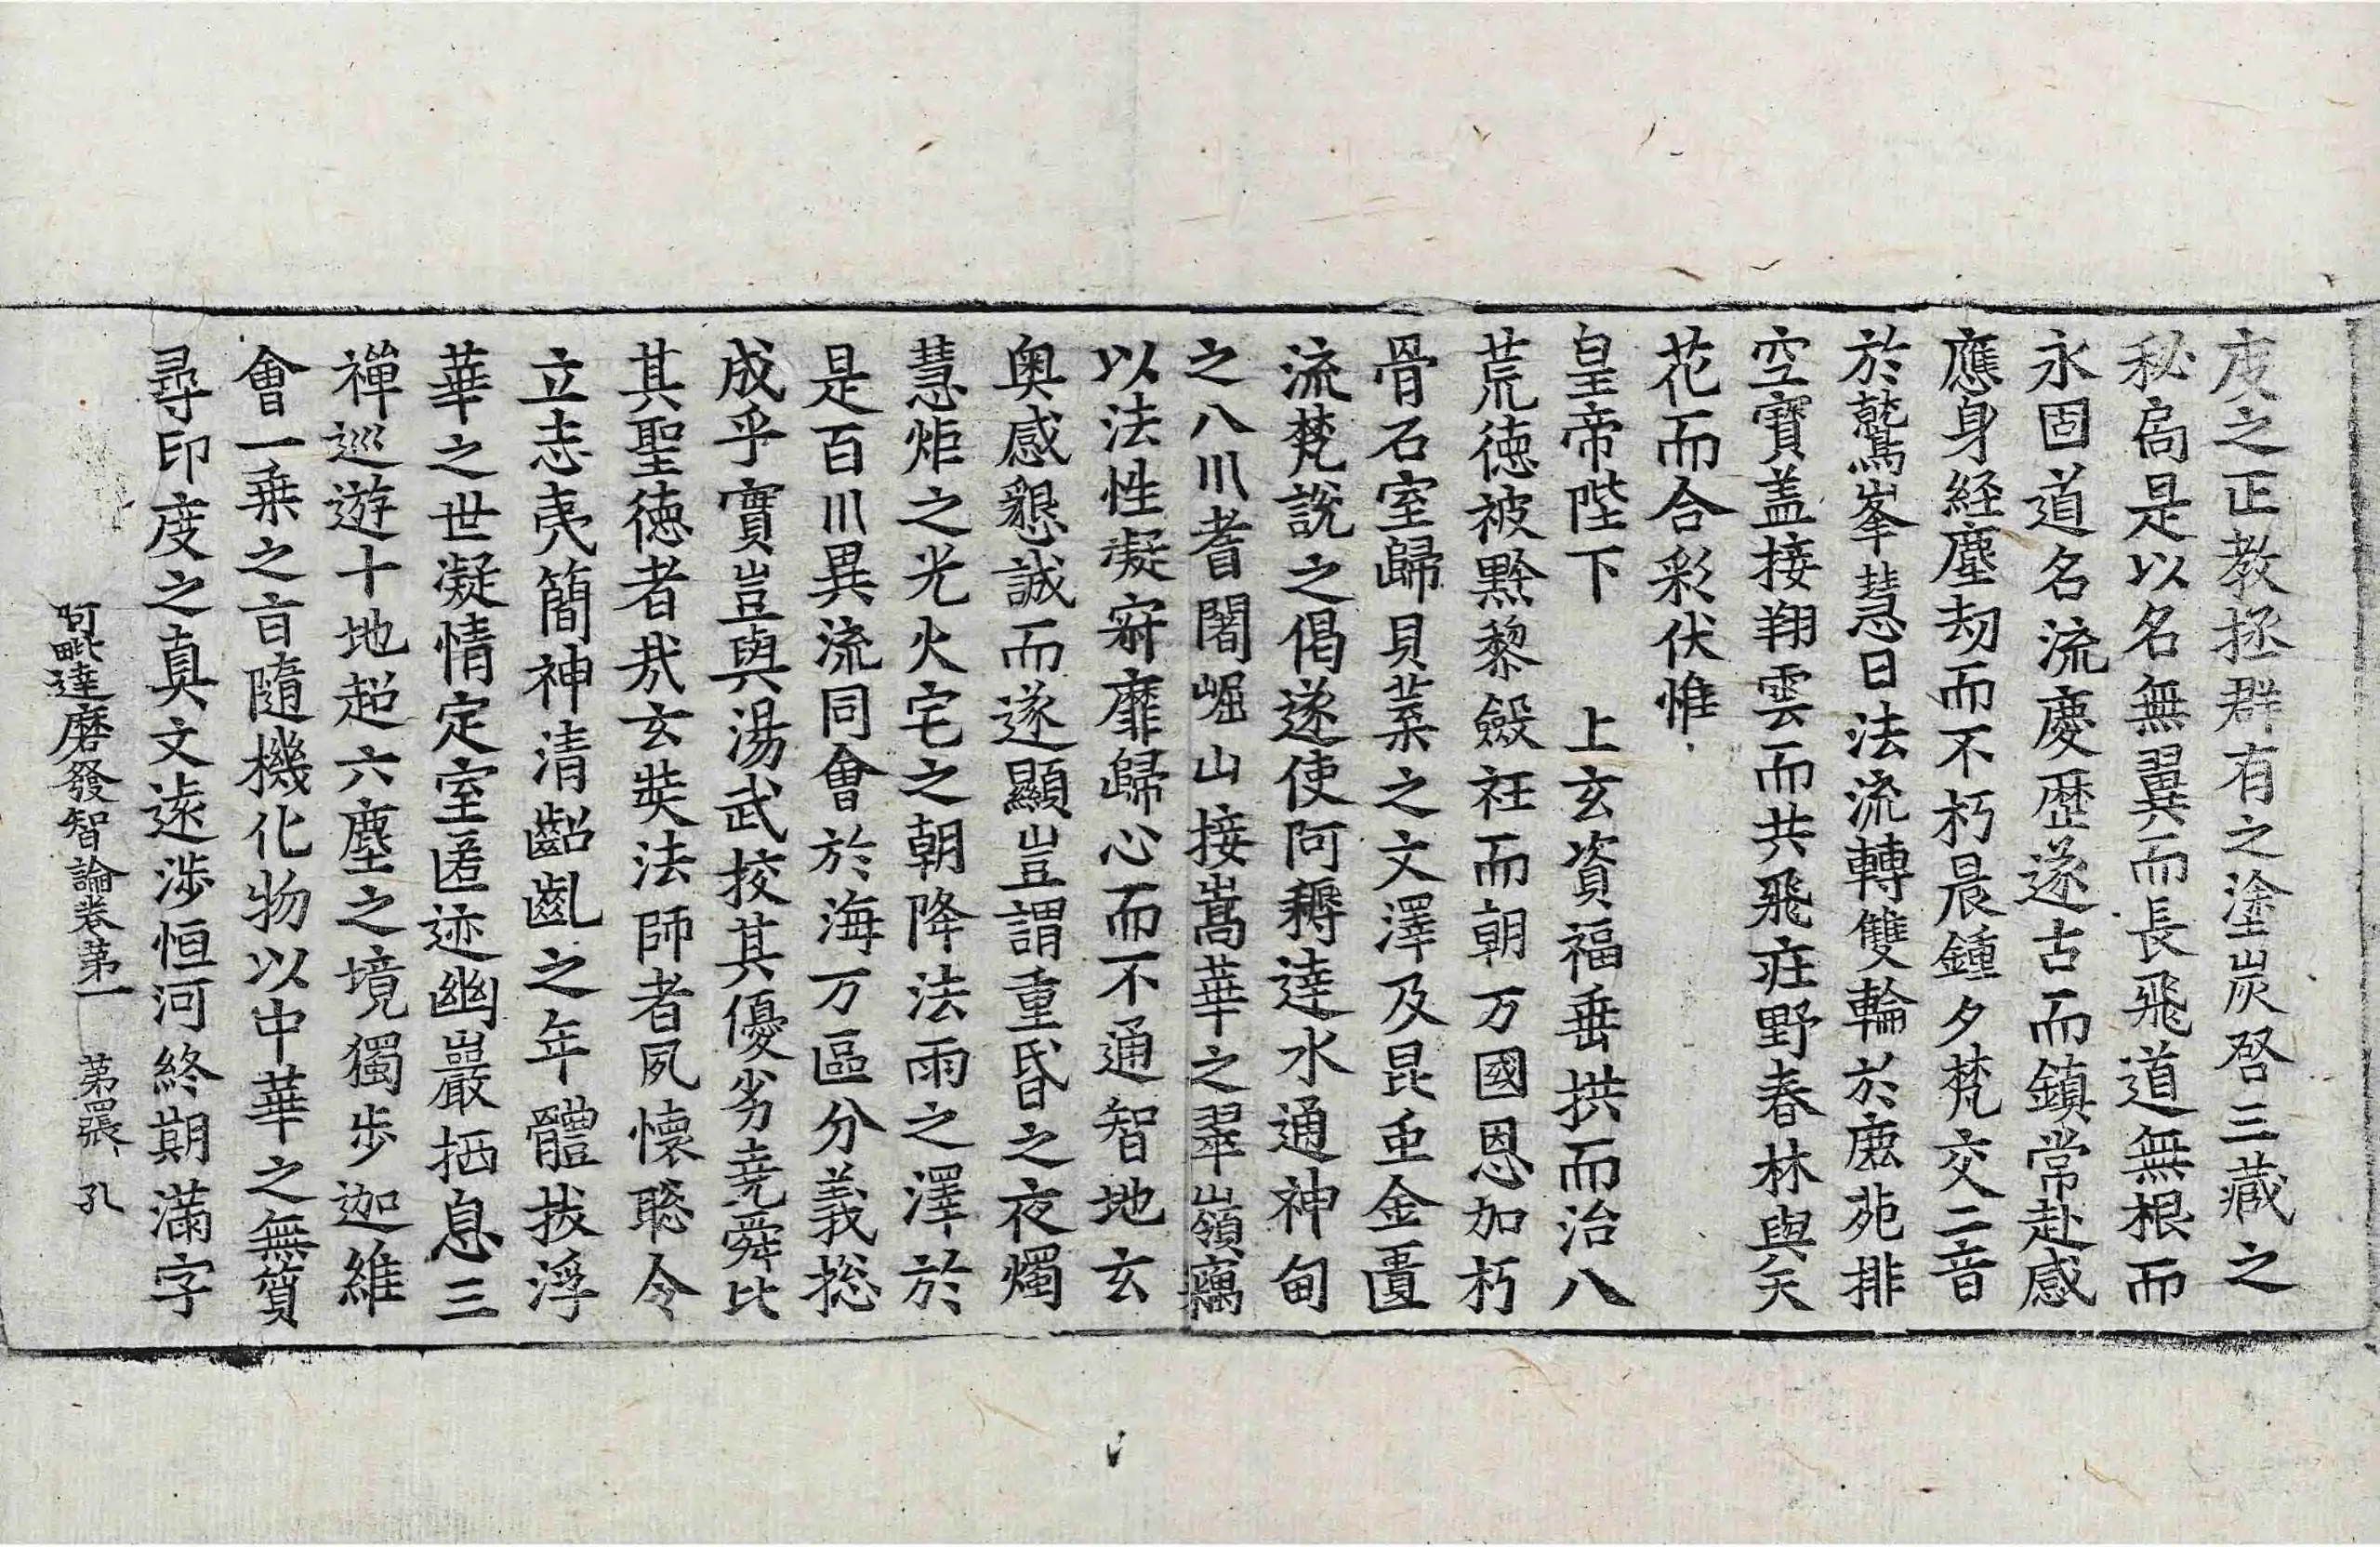 度之正教拯群有之塗炭啓三藏之
秘扄是以名無翼而長飛道無根而
永固道名流慶歷遂古而鎮常赴感
應身經塵劫而不朽晨鍾夕梵交二音
於鷲峯慧日法流轉雙輪於鹿苑排
空寶盖接翔雲而共飛庄野春林與天
花而合彩伏惟
皇帝陛下　上玄資福垂拱而治八
荒德被黔黎斂衽而朝万國恩加朽
骨石室歸貝葉之文澤及昆虫金匱
流梵說之偈遂使阿耨達水通神甸
之八川耆闍崛山接嵩華之翠嶺竊
以法性凝寂靡歸心而不通智地玄
奧感懇誠而遂顯豈謂重昏之夜燭
慧炬之光火宅之朝降法雨之澤於
是百川異流同會於海万區分義捴
成乎實豈與湯武挍其優劣堯舜比
其聖德者㢤玄奘法師者夙懷聡令
立志夷簡神清齠齔之年體拔浮
華之世凝情定室匿迹幽巖栖息三
禪巡遊十地超六塵之境獨步迦維
會一乗之旨隨機化物以中華之無質
尋印度之真文遠涉恒河終期滿字
阿毗達磨發智論卷第一　第四張　孔